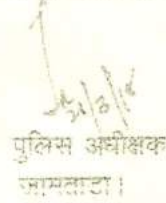 पुलिस अधीक्षक
जामताड़ा।